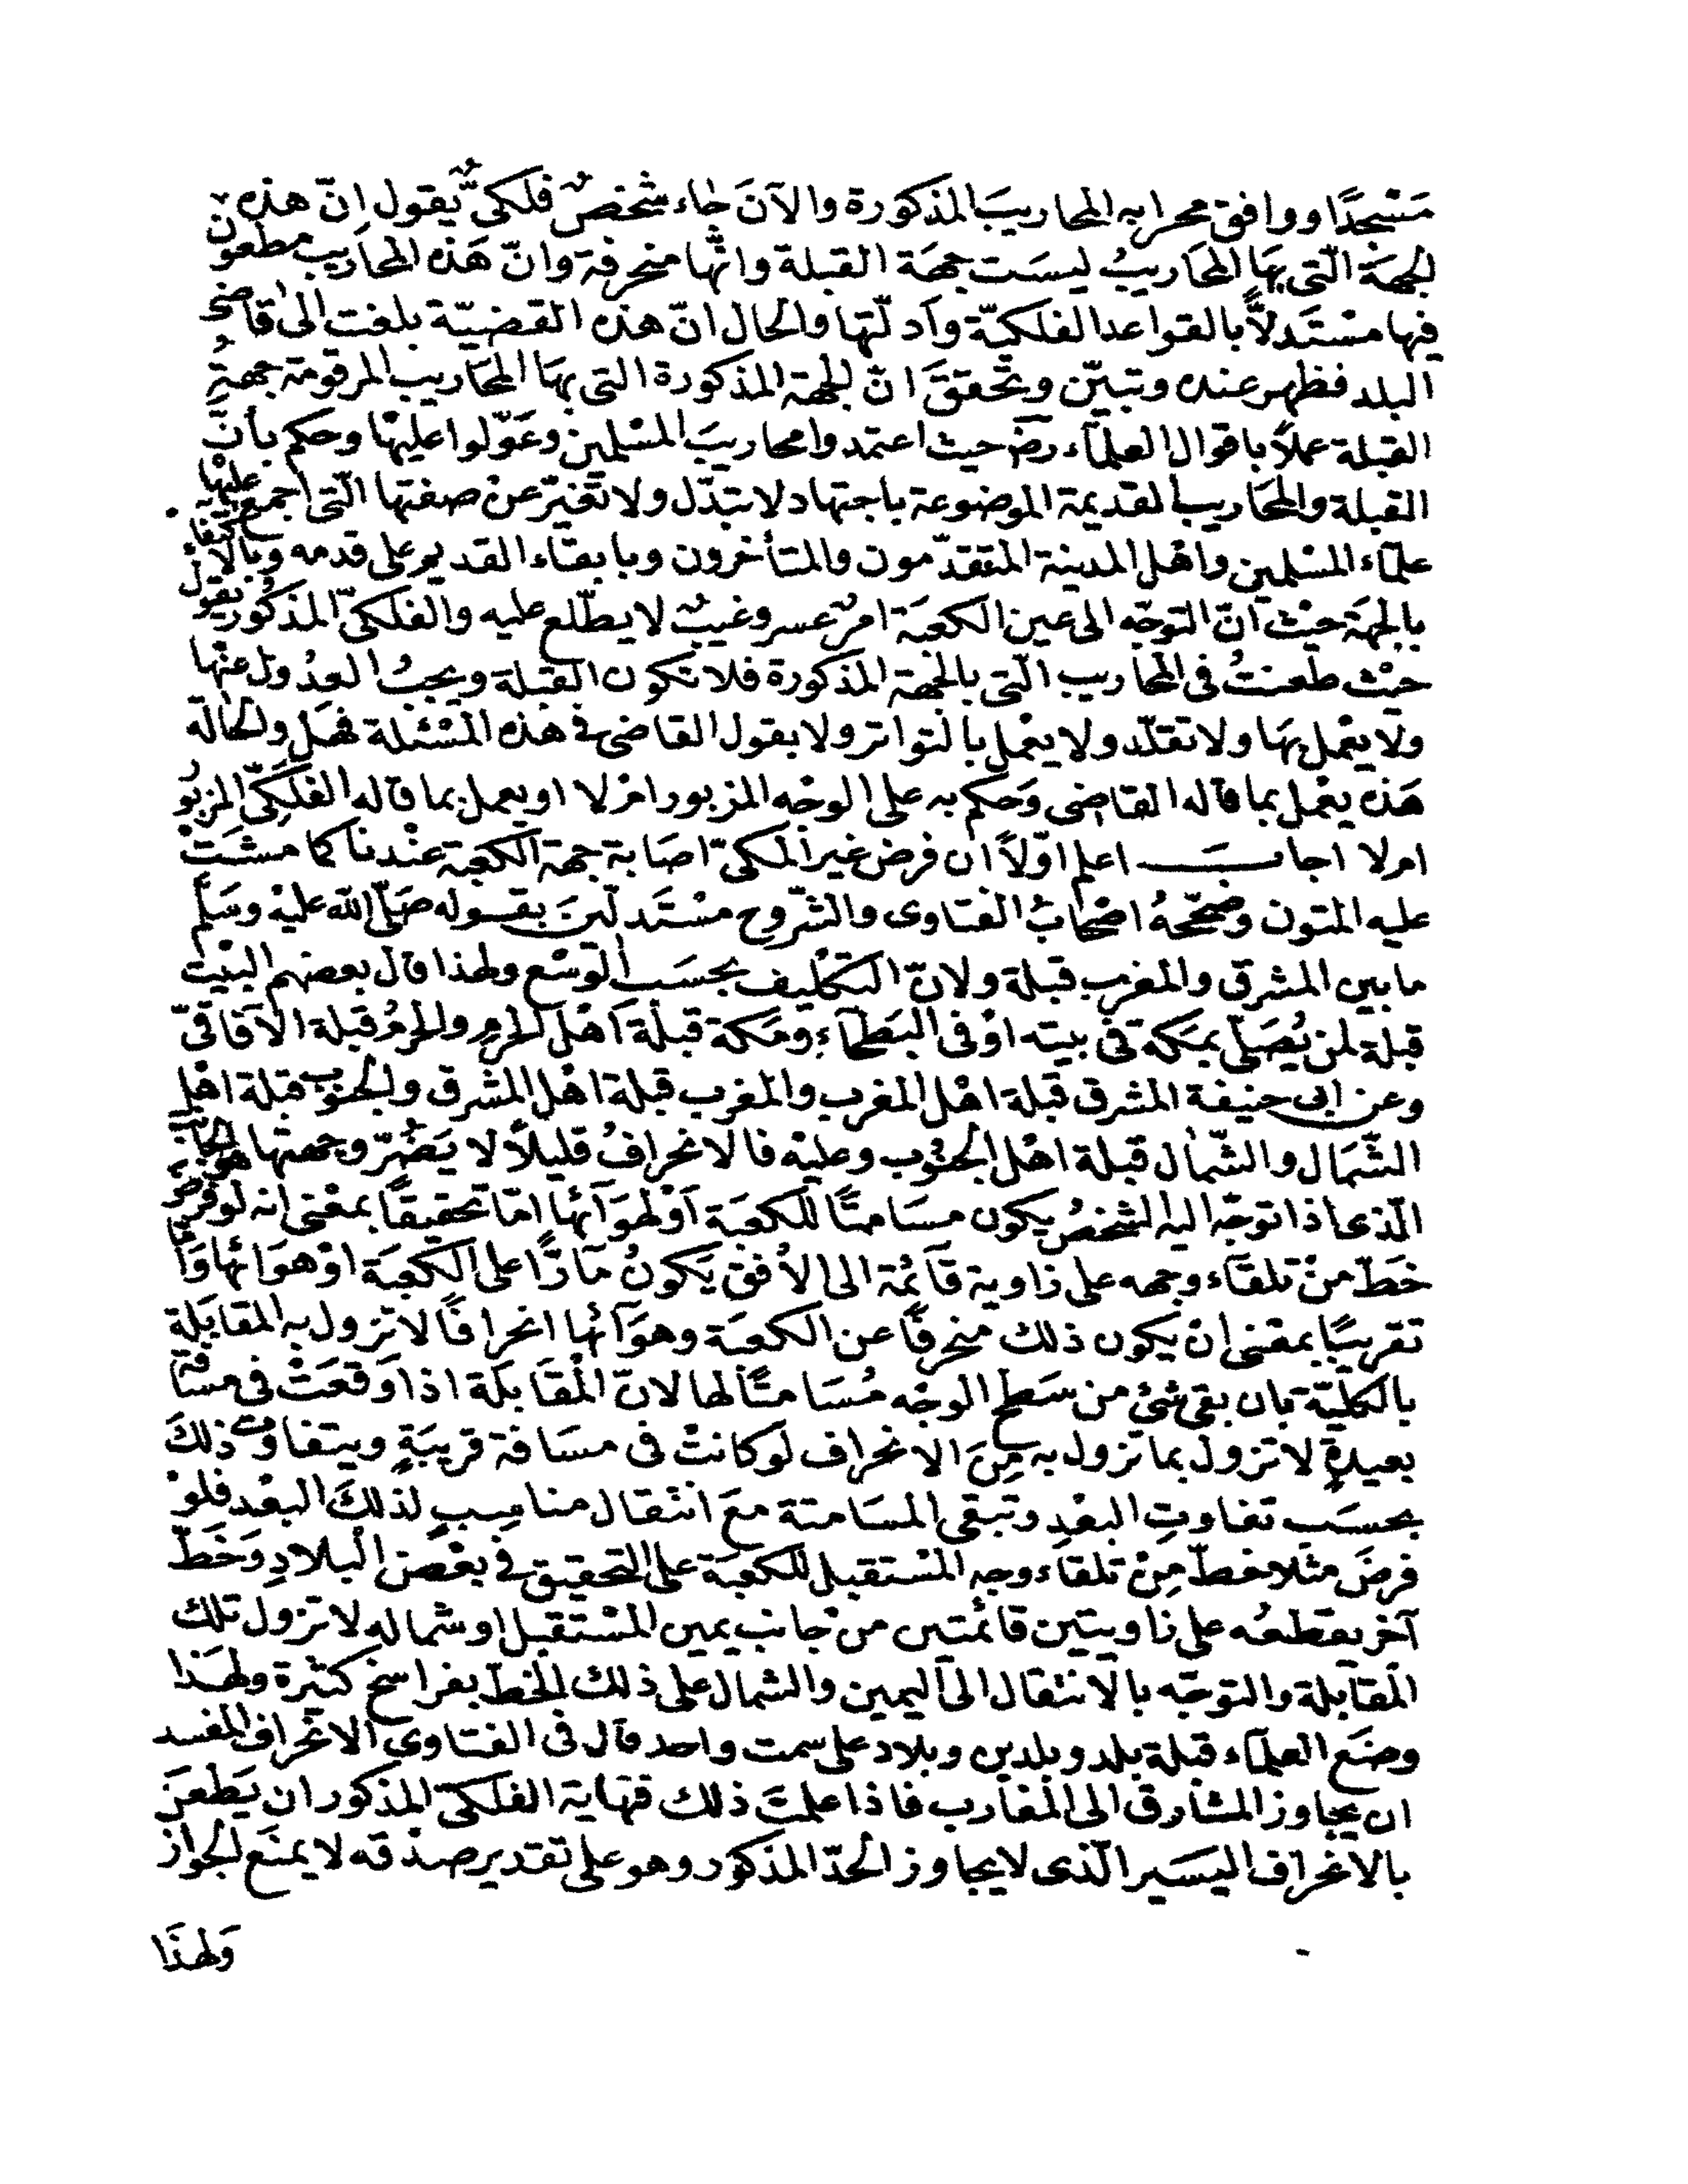 مَسْجِدًا ووافق محرابه المحاريبَ المذكورة والآنَ جاء شخصٌ فلكىٌّ يَقول اِنّ هذه
الجهَة الّتى بهَا المحَاريبُ ليسَت جهَة القبلة وانّها منحرفة وانّ هَذه المحاريب مطعون
فيها مسْتَدلاًّ بالقواعد الفلكيّة وَادلّتها والحال انّ هذه القضيّة بلغت الى قاضى
البلد فظهر عنده وتبيّن وتحقّقَ انّ الجهة المذكورة التى بهَا المحَاريب المرقومة جهةُ
القبلة عملاً باقوال العلمآء رضّ حيث اعتمدوا محاريبَ المسْلمين وعَوّلوا عليهْا وحكم بأنّ
القبلة والمحاريب القديمة الموضوعة باجتهاد لا تبدّل ولا تغيّر عنْ صفتها الّتى اجمع عليْها
علمآء المسْلمين واهْل المدينة المتقدّمون والمتأخرون وبابقاء القديم على قدمه وبالاكتفاء
بالجهَة حيْث انّ التوجّه الى عين الكعبَة امرٌ عسر وغيبٌ لا يطّلع عليه والفلكىّ المذكور يقول
حيْث طعنتُ فى المحاريب الّتى بالجهة المذكورة فلا تكون القبلة ويجبُ العدُول عنْها
ولا يعْمل بهَا ولا تقلّد ولا يعْمل بالتواتر ولا بقول القاضى فى هذه المسْئلة فهَل والحالة
هَذه يعْمل بما قاله القاضى وَحكم به على الوجْه المزبور امْ لا او يعمل بما قاله الفلَكِىّ المزبور
ام لا اجابَ اعلم اوّلاً ان فرض غير المكىّ اصَابة جهة الكعبة عنْدنا كما مشَتْ
عليه المتون وصحّحهُ اصْحابُ الفتاوى والشّروح مسْتَدلّينَ بقوله صَلّى الله عليْه وسَلّم
ما بين المشرق والمغرب قبلة ولانّ التكليف بحسَب الوسْع ولهذا قال بعضهم البيْت
قبلة لمن يُصَلّى بمكة فى بيته اوْ فى البَطحآء ومَكة قبلة اَهْل الحرَم والحرمُ قبلة الآفاقىّ
وعن ابى حنيفة المشرق قبلة اهْل المغرب والمغرب قبلة اهْل المشرق والجنوب قبلة اهْل
الشّمَال والشّمال قبلة اهْل الجنُوب وعليْه فالانحرافُ قليلاً لا يَضُرّ وجهتها هو الجانب
الّذى اذا توجّه اليه الشخصُ يكون مسَامتًا للكعبَة اَوْ لهوَآئها امّا تحقيقًا بمعْنى انه لو فرض
خَطّ منْ تلقآء وجهه على زاوية قآئمة الى الاُفق يَكونُ مَآرًّا على الكعبَة اوْ هوَائها وَامّا
تقريبًا بمعْنى انْ يكون ذلك منحرفًا عن الكعبَة وهوَآئها انحرافًا لا تزول به المقابَلة
بالكلّيّة بان بقى شئ من سَطح الوجْه مُسَامتًا لها لانّ المُقَابَلة اذا وَقعَتْ فى مسَافة
بعيدةٍ لا تزول بما تزول به مِنَ الانحراف لوْ كانتْ فى مسَافة قريبَةٍ ويتفاوت ذلكَ
بحسَب تفاوتِ البعْدِ وتبقى المسَامتة معَ انتقال مناسِبٍ لذلكَ البعْد فلوْ
فرضَ مثلا خطّ مِنْ تلقاء وجهِ المسْتقبل للكعبَة على التحقيق فى بعْض البلادِ وَخَطّ
آخر يقطعُه على زاويتين قائمتين منْ جانب يمين المسْتقبل او شماله لا تزول تلك
المقابلة والتوجّه بالانتقال الى اليمين والشمال على ذلك الخطّ بفراسخ كثيرة ولهَذا
وضَع العلمآء قبلة بلد وبلدين وبلاد على سمت واحد قال فى الفتاوى الانحراف المفسد
ان يجاوز المشارق الى المغارب فاذا علمتَ ذلك فنهاية الفلكىّ المذكور ان يَطعَنَ
بالانحراف اليسَير الّذى لا يجاوز الحدّ المذكور وهو على تقدير صدْقه لا يمنَع الجوَاز
وَلهذَا